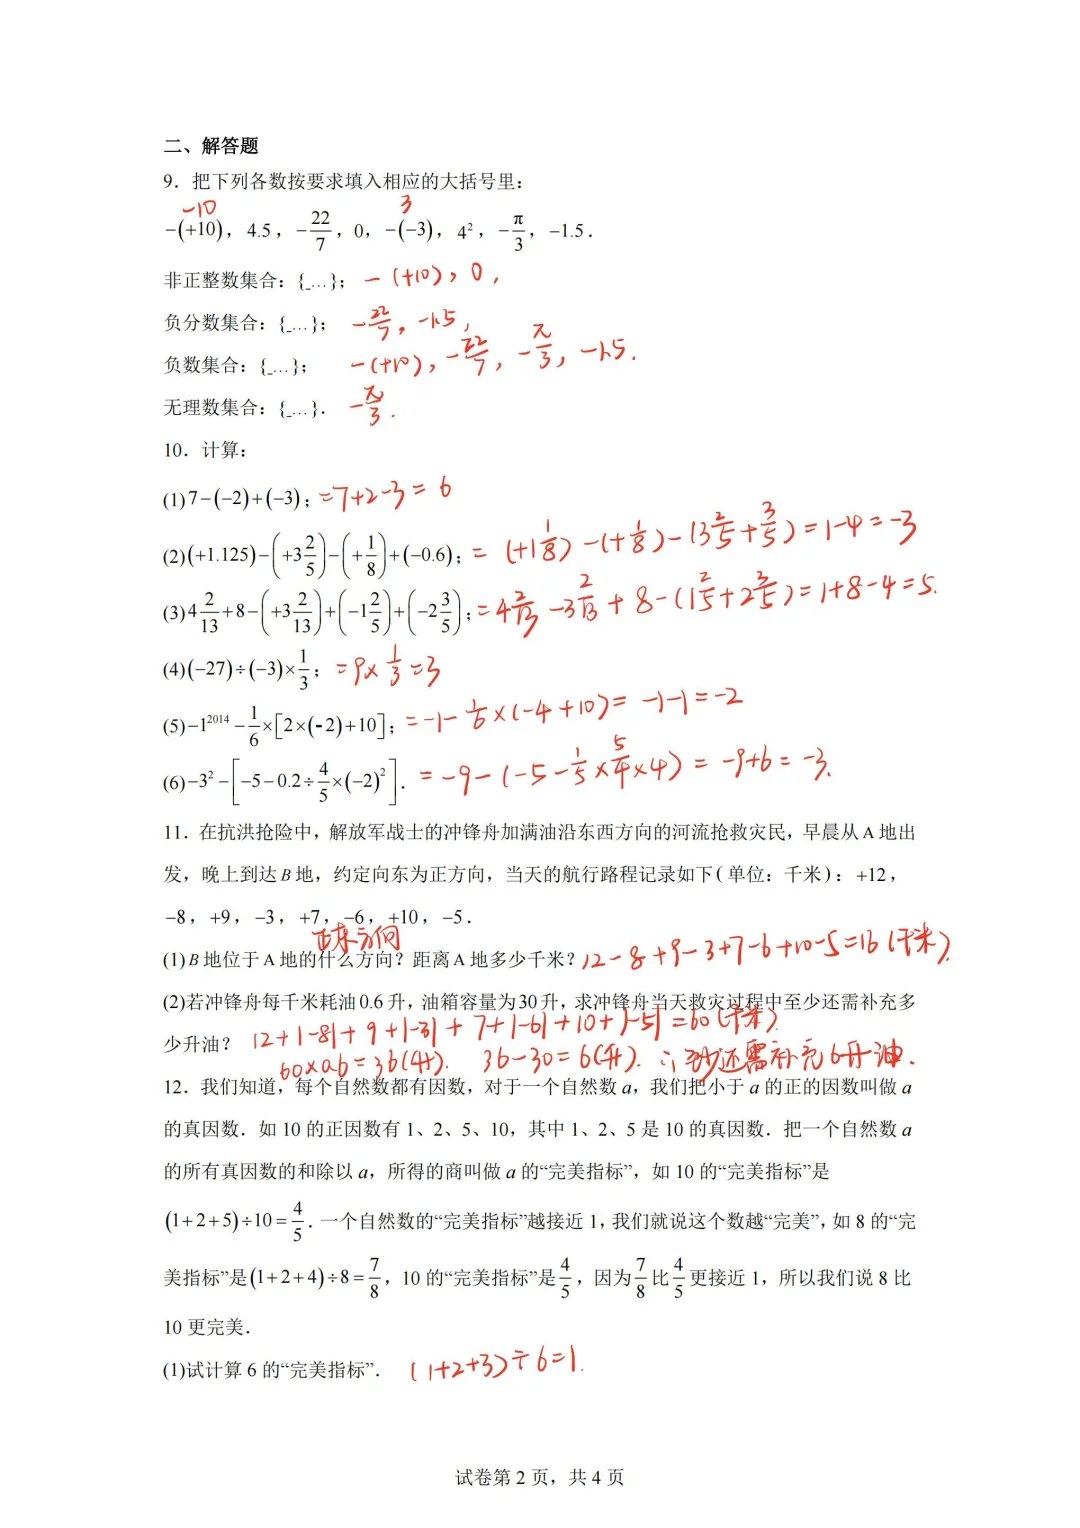 二、解答题
9．把下列各数按要求填入相应的大括号里：
-10 3
-(+10)，4.5，-22/7，0，-(-3)，4²，-π/3，-1.5．
非正整数集合：{_…}； -(+10)，0，
负分数集合：{_…}； -22/7，-1.5，
负数集合：{_…}； -(+10)，-22/7，-π/3，-1.5.
无理数集合：{_…}． -π/3.
10．计算：
(1) 7-(-2)+(-3)； =7+2-3=6
(2) (+1.125)-(+3 2/5)-(+1/8)+(-0.6)； = (+1 1/8)-(+1/8)-(3 2/5+3/5)=1-4=-3
(3) 4 2/13+8-(+3 2/13)+(-1 2/5)+(-2 3/5)； =4 2/13-3 2/13+8-(1 2/5+2 3/5)=1+8-4=5.
(4) (-27)÷(-3)×1/3； =9×1/3=3
(5) -1²⁰¹⁴-1/6×[2×(-2)+10]； =-1-1/6×(-4+10)= -1-1=-2
(6) -3²-[-5-0.2÷4/5×(-2)²]． =-9-(-5-1/5×5/4×4)= -9+6=-3.
11．在抗洪抢险中，解放军战士的冲锋舟加满油沿东西方向的河流抢救灾民，早晨从A地出
发，晚上到达B地，约定向东为正方向，当天的航行路程记录如下(单位：千米)：+12，
-8，+9，-3，+7，-6，+10，-5．
方向
(1)B地位于A地的什么方向？距离A地多少千米？12-8+9-3+7-6+10-5=16(千米)
(2)若冲锋舟每千米耗油0.6升，油箱容量为30升，求冲锋舟当天救灾过程中至少还需补充多
少升油？ 12+|-8|+9+|-3|+7+|-6|+10+|-5|=60(千米)
60×0.6=36(升). 36-30=6(升). ∴至少还需补充6升油.
12．我们知道，每个自然数都有因数，对于一个自然数a，我们把小于a的正的因数叫做a
的真因数．如10的正因数有1、2、5、10，其中1、2、5是10的真因数．把一个自然数a
的所有真因数的和除以a，所得的商叫做a的“完美指标”，如10的“完美指标”是
(1+2+5)÷10=4/5．一个自然数的“完美指标”越接近1，我们就说这个数越“完美”，如8的“完
美指标”是(1+2+4)÷8=7/8，10的“完美指标”是4/5，因为7/8比4/5更接近1，所以我们说8比
10更完美．
(1)试计算6的“完美指标”． (1+2+3)÷6=1.
试卷第2页，共4页